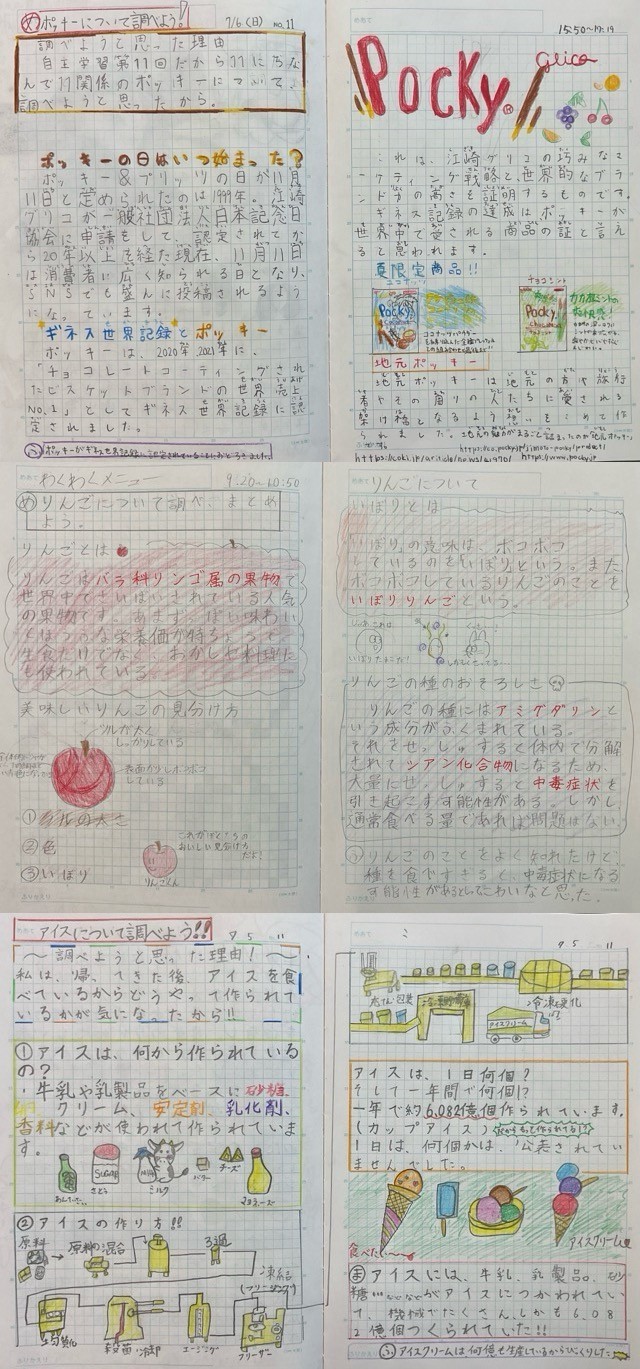 め ポッキーについて調べよう!! 7/6(日) no.11
調べようと思った理由
自主学習第11回だから11にちな
んで11関係のポッキーについて、
調べようと思ったから。
ポッキーの日はいつ始まった?
ポッキー&プリッツの日が11月
11日と定められたのは1999年。江崎
グリコが一般社団法人日本記念日
協会に申請をして、認定されてか
ら20年以上を経た現在、11月11日
は消費者に広く知られる日となり、
SNSでも盛んに投稿されるよう
になっています。
ギネス世界記録とポッキー
ポッキーは、2020年2021年に、
「チョコレートコーティングされ
たビスケットブランドの世界売上
No.1」としてギネス世界記録に認
定されました。
ふ ポッキーがギネス世界記録に認定されていることにおどろきました。
15:50~17:19
Pocky® Glico
これは、江崎グリコの巧みなマ
ーケティング戦略と、世界的なブラ
ンド力の高さを証明するものです。
ギネス記録の達成はポッキーが
世界中で愛される商品の証と言え
ると思われます。
夏限定商品!!
ココナッツ
Pocky
チョコミント
Pocky
地元ポッキー
地元ポッキーは地元の方や旅行
者やその周りの人たちに愛される
架け橋となるよう想いをこめて作
られました。
わくわくメニュー 9:20~10:50
め りんごについて調べ、まとめ
よう。
りんごとは
りんごはバラ科リンゴ属の果物で
世界中でさいばいされている人気
の果物です。あまずっぱい味わい
とほうふな栄養価が特ちょうで
生食だけでなく、おかしや料理に
も使われている。
美味しいりんごの見分け方
ツルが太く
しっかりしている
表面が少しボコボコ
している
①
②色
③いぼり
これがぼくたちの
おいしい見分け方
だよ!
りんごくん
りんごについて
いぼりとは
「いぼり」の意味は、ボコボコ
しているのをいぼりという。また
ボコボコしているりんごのことを
いぼりりんごという。
りんごの種のおそろしさ
りんごの種にはアミグダリンと
いう成分がふくまれている。
それをせっしゅすると体内で分解
されてシアン化合物になるため、
大量にせっしゅすると中毒症状を
引き起こす可能性がある。しかし
通常食べる量であれば問題はない。
ふ りんごのことをよく知れたけど、
種を食べすぎると、中毒症状になる
可能性があるとしってこわいなと思った。
アイスについて調べよう!! 9 5 11
~調べようと思った理由!~
私は、帰ってきた後、アイスを食
べているからどうやって作られて
いるかが気になったから!!
①アイスは、何から作られている
の?
・牛乳や乳製品をベースに砂糖、
クリーム、安定剤、乳化剤、
香料などが使われて作られていま
す。
さとう
SUGAR
ミルク
バター
チーズ
②アイスの作り方!!
原料
原料の混合
ろ過
均質化
殺菌・冷却
エージング
フリーザー
凍結
(フリージング)
9 5 11
充てん・包装
冷凍硬化
アイスクリーム
アイスは、1日何個?
そして一年間で何個!?
一年で約6.082億個作られています。
(カップアイス)
1日は、何個かは、公表されてい
ませんでした。
食べたい~
アイスクリーム
ま アイスには、牛乳、乳製品、砂
糖…などがアイスにつかわれてい
て、機械でたくさん、しかも6.08
2億個つくられていた!!
ふ アイスクリームは何億も生産しているからびっくりした